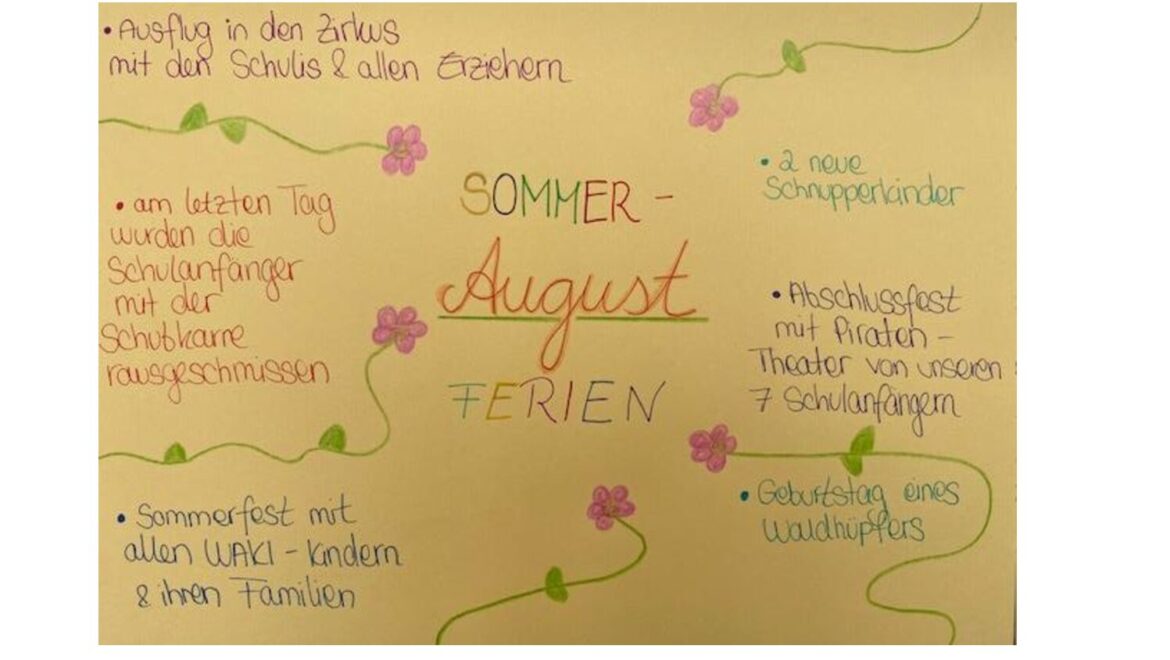 • Ausflug in den Zirkus
mit den Schulis & allen Erziehern
• am letzten Tag
wurden die
Schulanfänger
mit der
Schubkarre
rausgeschmissen
• Sommerfest mit
allen WAKI - Kindern
& ihren Familien
SOMMER -
August
FERIEN
• 2 neue
Schnupperkinder
• Abschlussfest
mit Piraten -
Theater von unseren
7 Schulanfängern
• Geburtstag eines
Waldhüpfers